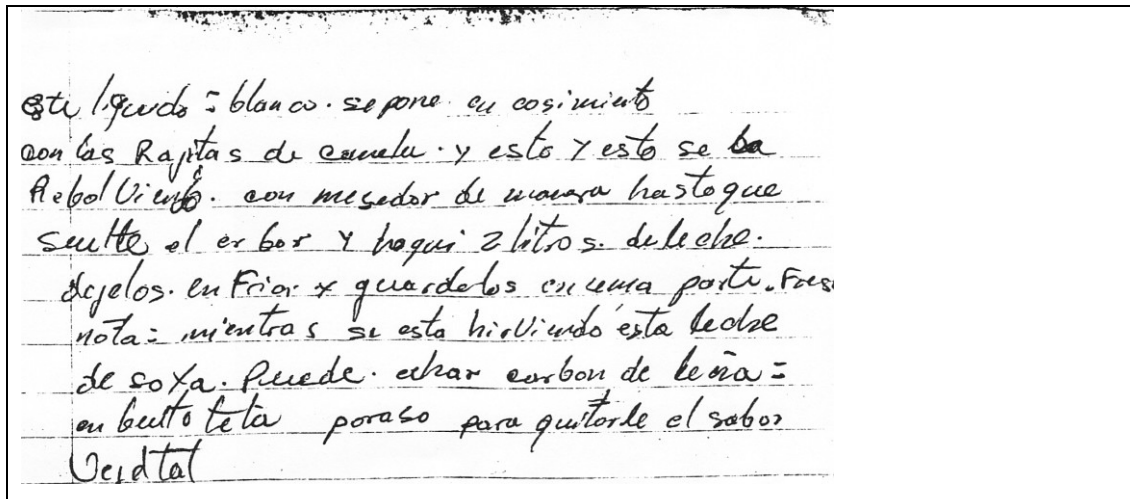 este liquido = blanco. se pone en cosimiento
con las Rajitas de canela. y esto y esto se ba
Rebolviendo. con mesedor de manera hasta que
suelte el erbor y haqui 2 litros. de leche.
dejelos. enFriar y guardelos en una parte. Fres
nota = mientras se esta hirviendo esta leche
de soya. Puede. echar carbon de leña =
en para quitarle el sabor